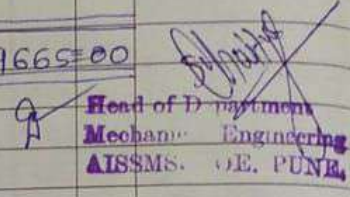 1665=00
Head of D partment
Mechan Engineering
AISSMS. OE. PUNE,